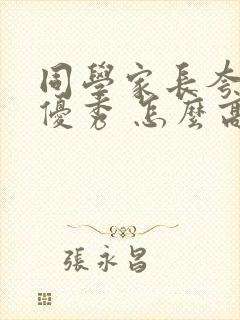 同學家長夸
優秀 怎麼高
張永昌